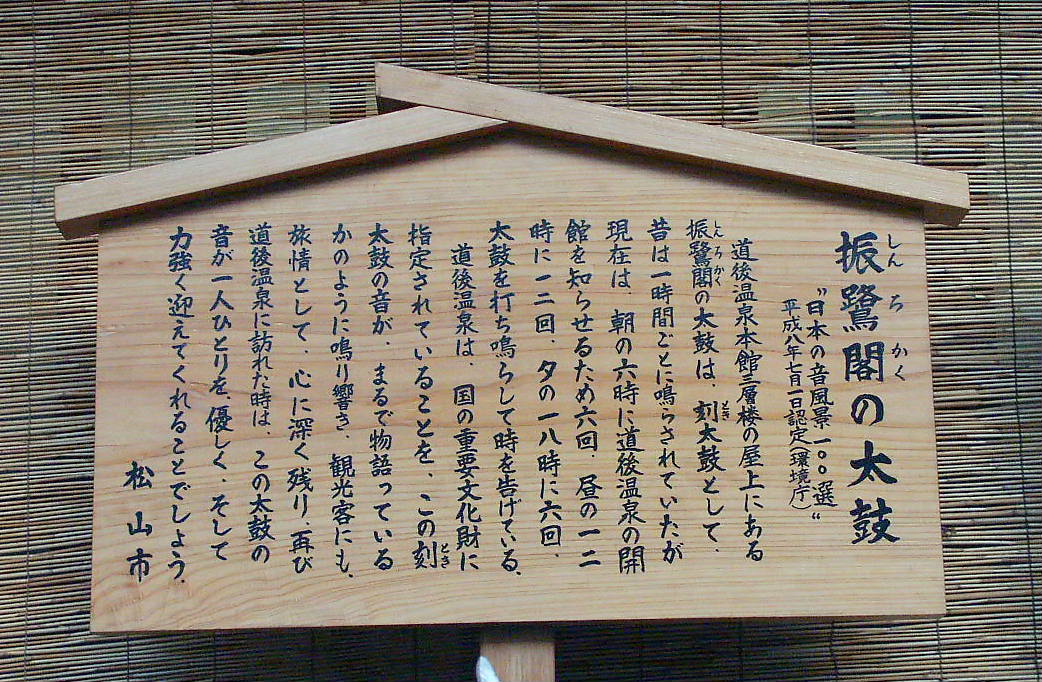 振鷺閣の太鼓
しんろかく
"日本の音風景一〇〇選"
平成八年七月一日認定(環境庁)
道後温泉本館三層楼の屋上にある
振鷺閣の太鼓は、刻太鼓として、
しんろかく
とき
昔は一時間ごとに鳴らされていたが
現在は、朝の六時に道後温泉の開
館を知らせるため六回、昼の一二
時に一二回、夕の一八時に六回、
太鼓を打ち鳴らして時を告げている。
道後温泉は、国の重要文化財に
指定されていることを、この刻
とき
太鼓の音が、まるで物語っている
かのように鳴り響き、観光客にも、
旅情として、心に深く残り、再び
道後温泉に訪れた時は、この太鼓の
音が一人ひとりを、優しく、そして
力強く迎えてくれることでしょう。
松山市